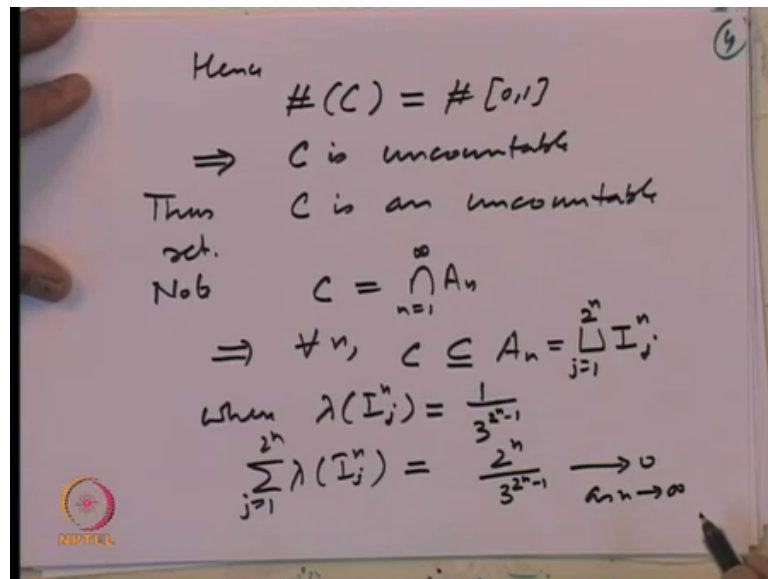 ④
Hence
#(C) = #[0,1]
⇒ C is uncountable
Thus C is an uncountable
set.
Note C = ⋂_{n=1}^{∞} A_n
⇒ ∀ n, C ⊆ A_n = ⨆_{j=1}^{2^n} I_j^n
where λ(I_j^n) = 1/3^{2^n-1}
∑_{j=1}^{2^n} λ(I_j^n) = 2^n/3^{2^n-1} → 0
as n → ∞
NPTEL